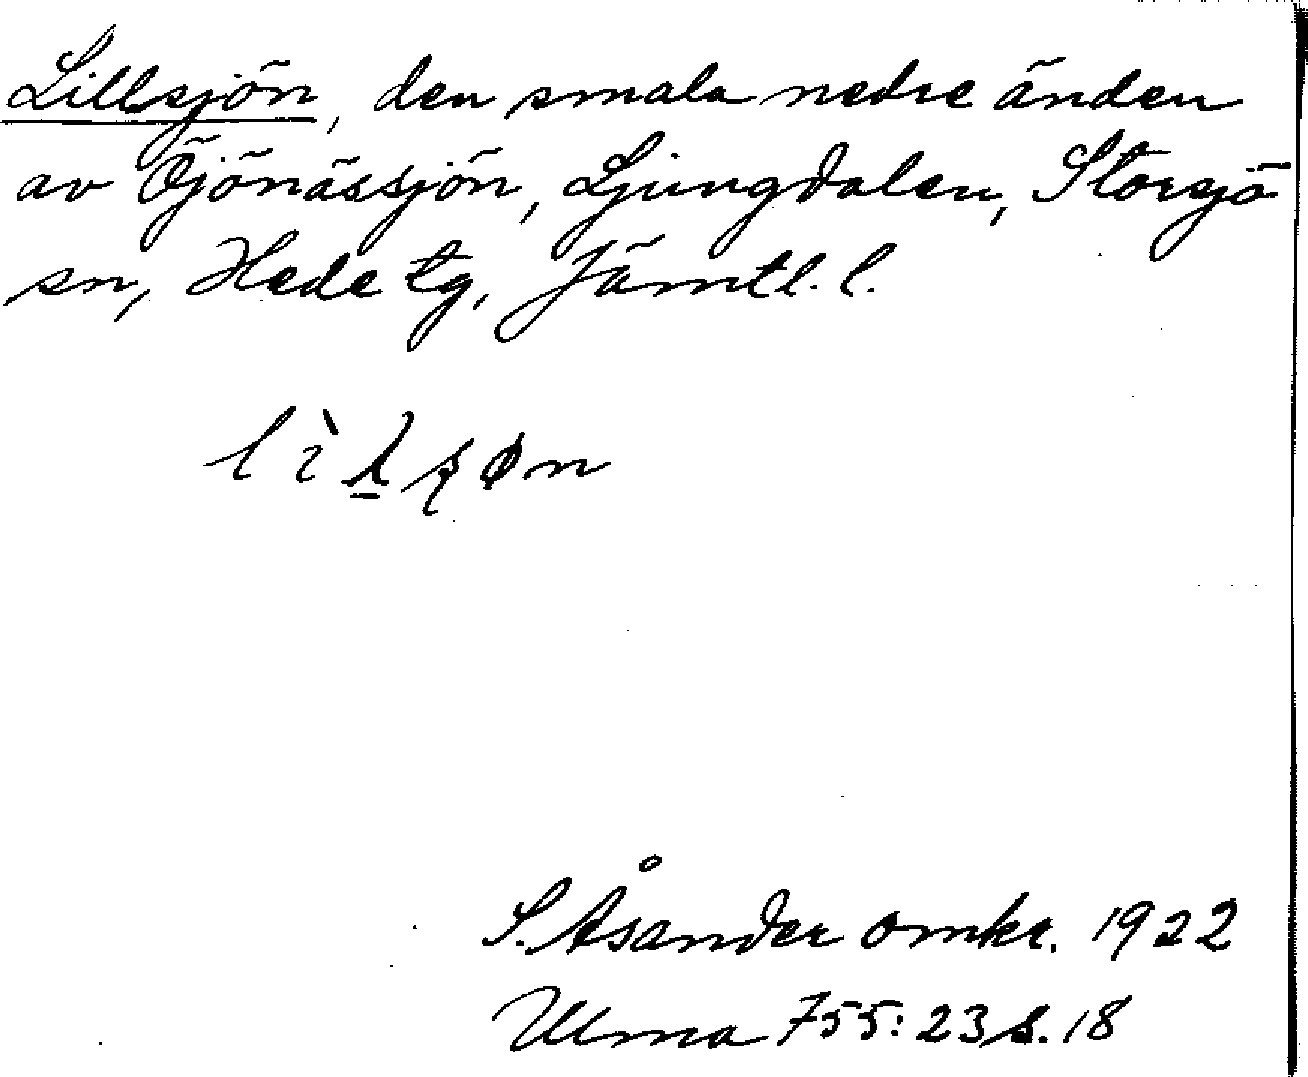 Lillsjön, den smala nedre änden
av Öjönässjön, Ljungdalen, Storsjö
sn, Hede tg, Jämtl. l.
S. Åsander omkr. 1922
Ulma 755: 23 s. 18